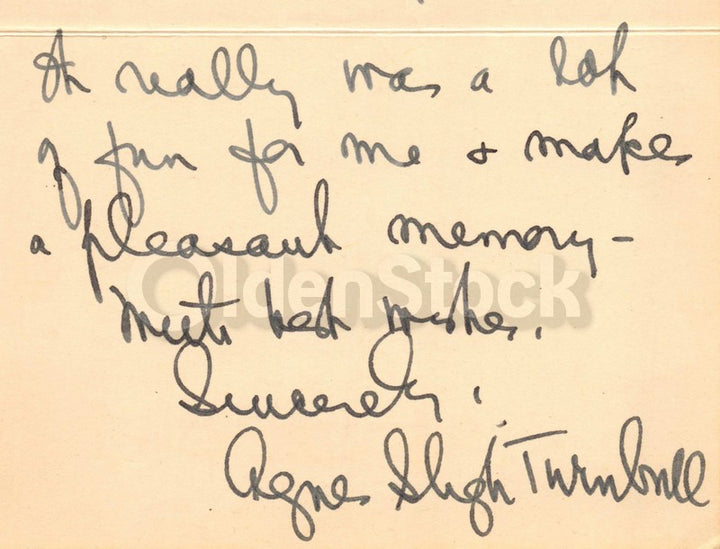 It really was a lot
of fun for me & makes
a pleasant memory -
With best wishes.
Sincerely,
Agnes Sligh Turnbull
OldenStock